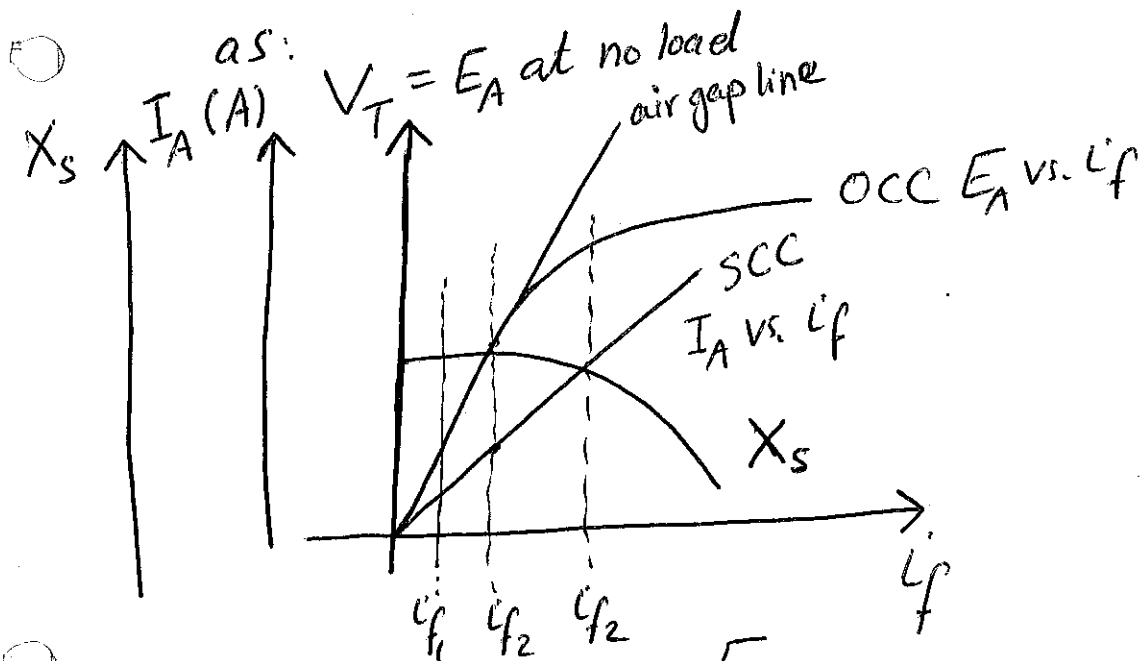 as:
V_T = E_A at no load
air gap line
X_s
I_A (A)
OCC E_A vs. i_f
SCC
I_A vs. i_f
X_s
i_f
i_f1 i_f2 i_f2